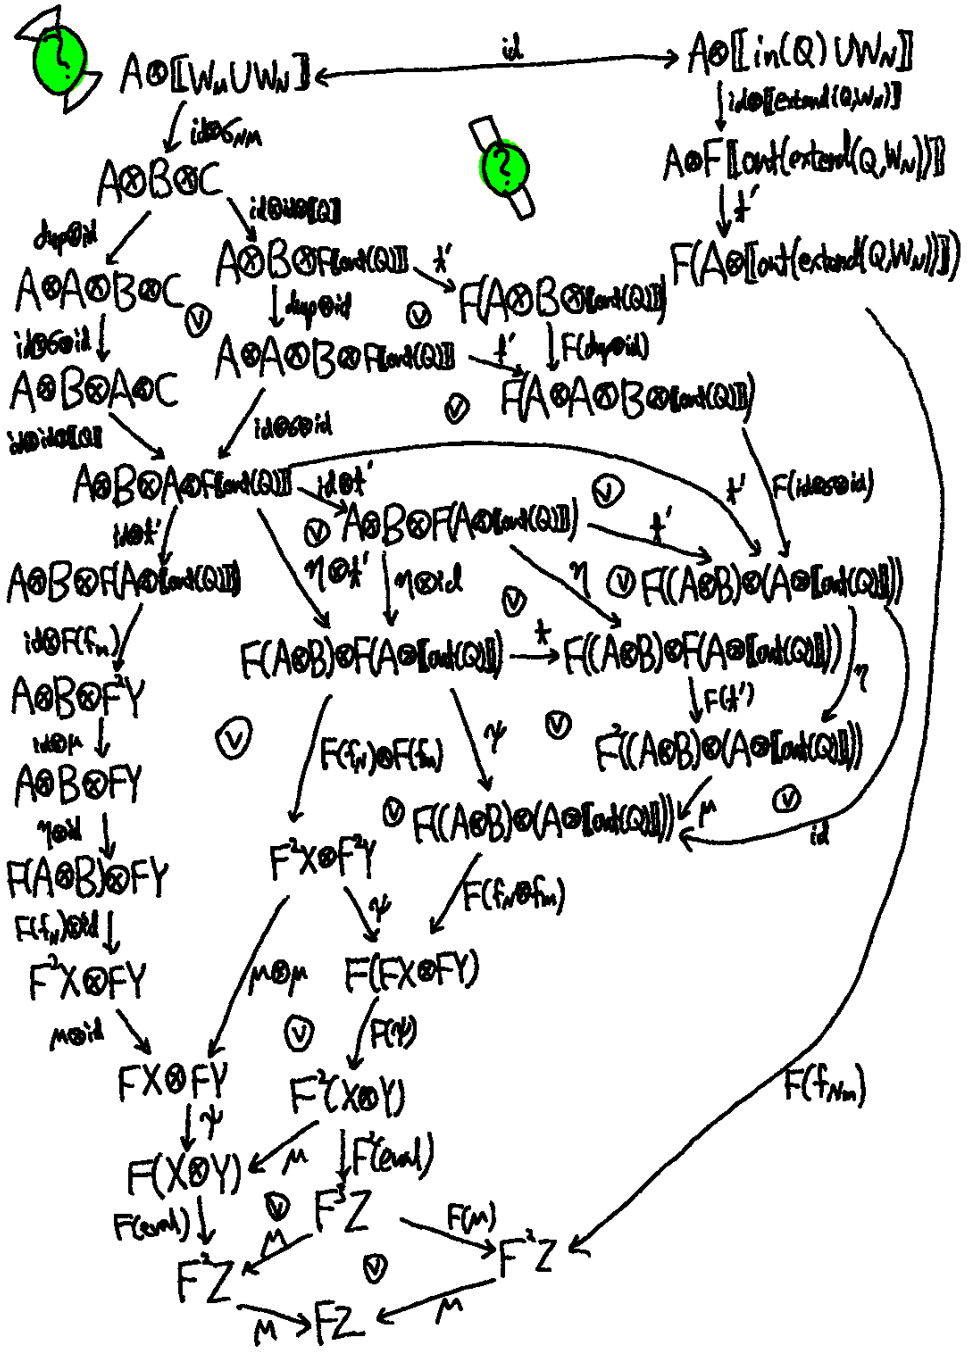 ?
id
A⊗⟦W_M∪W_N⟧
A⊗⟦in(Q)∪W_N⟧
id⊗σ_NM
id⊗⟦extend(Q,W_N)⟧
?
A⊗B⊗C
A⊗F⟦out(extend(Q,W_N))⟧
dup⊗id
id⊗id⊗⟦Q⟧
t'
A⊗B⊗F⟦out(Q)⟧
t'
F(A⊗⟦out(extend(Q,W_N))⟧)
A⊗A⊗B⊗C
dup⊗id
F(A⊗B⊗⟦out(Q)⟧)
id⊗σ⊗id
A⊗A⊗B⊗F⟦out(Q)⟧
t'
F(dup⊗id)
A⊗B⊗A⊗C
F(A⊗A⊗B⊗⟦out(Q)⟧)
id⊗id⊗⟦Q⟧
id⊗σ⊗id
A⊗B⊗A⊗F⟦out(Q)⟧
id⊗t'
t'
F(id⊗σ⊗id)
id⊗t'
A⊗B⊗F(A⊗⟦out(Q)⟧)
t'
A⊗B⊗F(A⊗⟦out(Q)⟧)
η⊗t'
η⊗id
η
F((A⊗B)⊗(A⊗⟦out(Q)⟧))
id⊗F(f_M)
F(A⊗B)⊗F(A⊗⟦out(Q)⟧)
t
F((A⊗B)⊗F(A⊗⟦out(Q)⟧))
A⊗B⊗F²Y
F(t')
η
id⊗μ
F(f_N)⊗F(f_M)
ψ
F²((A⊗B)⊗(A⊗⟦out(Q)⟧))
A⊗B⊗FY
μ
η⊗id
F((A⊗B)⊗(A⊗⟦out(Q)⟧))
id
F(A⊗B)⊗FY
F²X⊗F²Y
F(f_N⊗f_M)
F(f_N)⊗id
ψ
F²X⊗FY
μ⊗μ
F(FX⊗FY)
μ⊗id
F(ψ)
FX⊗FY
F²(X⊗Y)
F(f_NM)
ψ
μ
F²(eval)
F(X⊗Y)
F(eval)
F³Z
F(μ)
μ
F²Z
F²Z
μ
FZ
μ